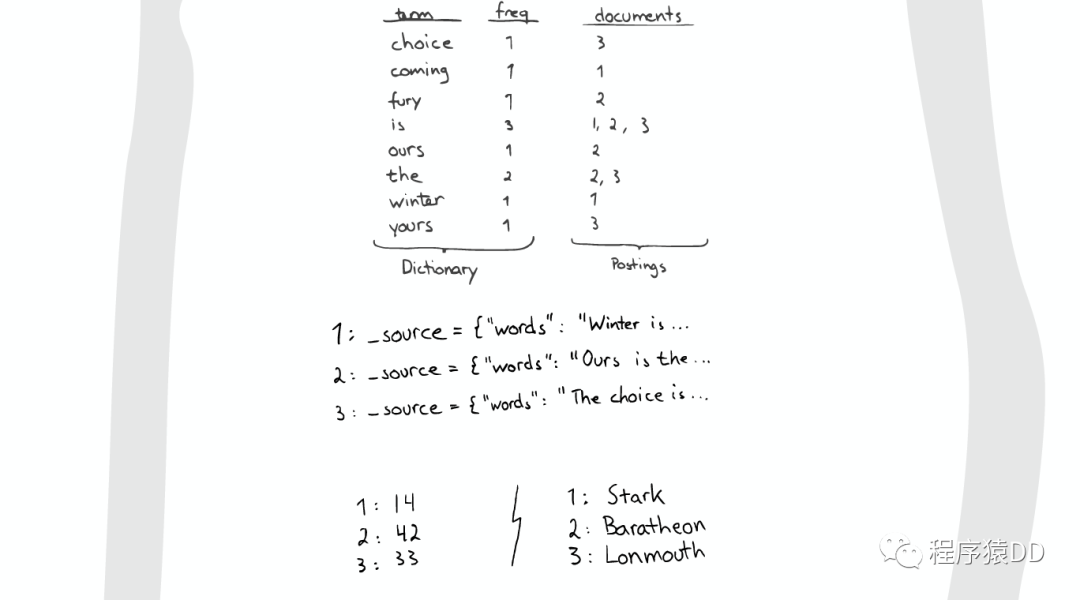 term freq documents
choice 1 3
coming 1 1
fury 1 2
is 3 1, 2, 3
ours 1 2
the 2 2, 3
winter 1 1
yours 1 3
Dictionary Postings
1: _source = {"words": "Winter is ...
2: _source = {"words": "Ours is the ...
3: _source = {"words": "The choice is ...
1: 14 1: Stark
2: 42 2: Baratheon
3: 33 3: Lonmouth
程序猿DD